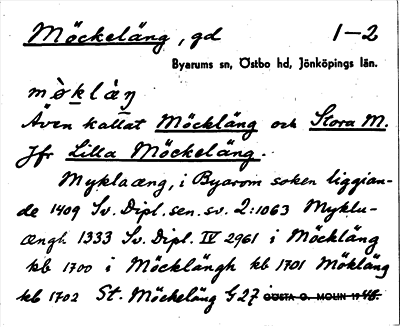 Möckeläng, gd 1–2
Byarums sn, Östbo hd, Jönköpings län.
mø̀klàŋ
Även kallat Möckläng och Stora M.
Jfr Lilla Möckeläng.
Myklaæng, i Byarom soken liggian-
de 1409 Sv. Dipl. sen. sv. 2:1063 Myklu-
ængh 1333 Sv. Dipl. IV 2961 i Möckläng
kb 1700 i Möcklängh kb 1701 Mökläng
kb 1702 St. Möckeläng G 27 GÖSTA O. MOLIN 1946.